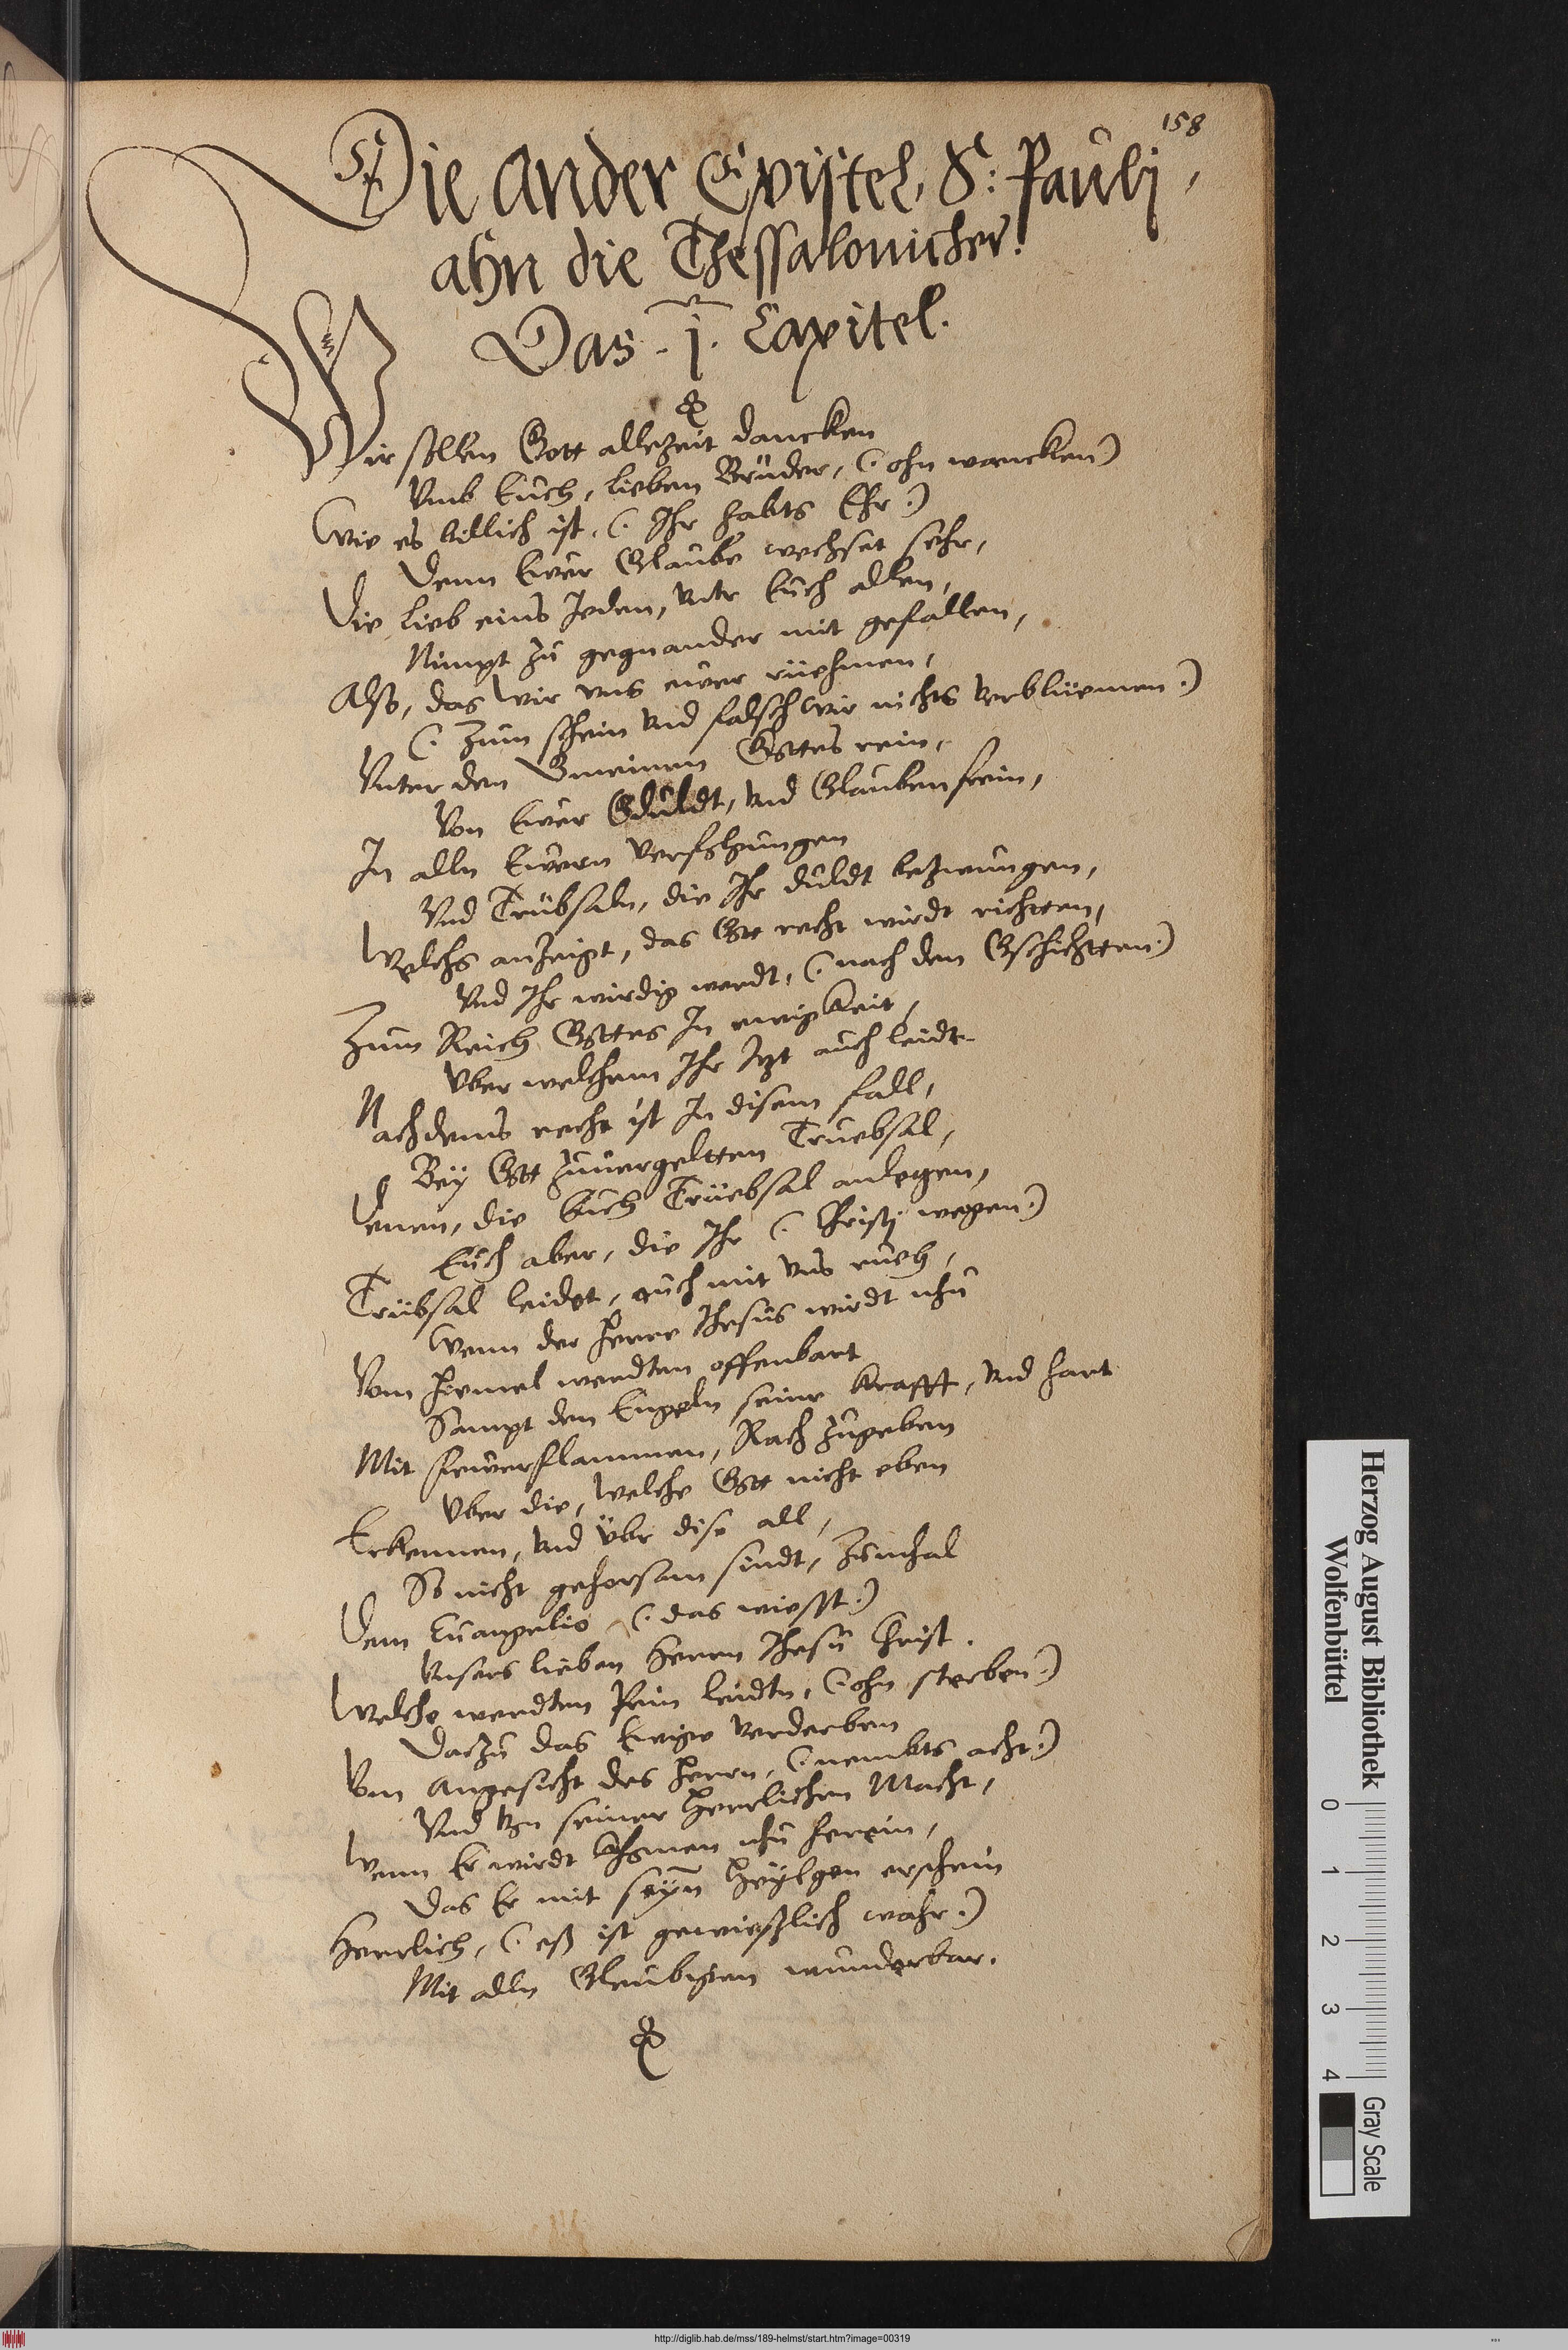 158
Die ander Epistel, S: Paulj,
ahn die Thessalonicher.
Das .j. Capitel.
Wir sollen Gott allezeit dancken
Vmb Euch, lieben Brüder, (: ohn wancken)
Wie es billich ist. (: Ihr habts Ehr :)
Denn Ewer Glaube wechset sehr,
Die lieb eins Jeden, vntr Euch allen,
Nimpt zu gegnander mit gefallen,
Also, das wir vns ewer rüehmen,
(: Zum schein vnd falsch wir nichts verblüemen :)
Vnter den Gmeinen Gottes rein,
Von Ewer Gduldt, vnd Glauben fein,
In alln Ewern verfolgungen
Vnd Trübsaln, die Ihr duldt bezwungen,
Welchs anzeigt, das Gott recht wirdt richten,
Vnd Ihr wirdig werdt, (: nach den Gschichtten :)
Zum Reich Gottes In ewigkeit,
Vber welchem Ihr Itzt auch leidt.
Nachdems recht ist In disem fall,
Bey Gott zuuergeltten Truebsal,
Denen, die Euch Trüebsal anlegen,
Euch aber, die Ihr (: Christj wegen :)
Trübsal leidet, auch mit vns rueh,
Wenn der Herre Jhesus wirdt nhu
Vom Hiemel werdten offenbart
Sampt den Engeln seiner krafft, vnd hart
Mit fewerflammen, Rach zugeben
Vber die, welche Gott nicht eben
Erkennen, vnd übr dise all,
So nicht gehorsam sindt, zumhal
Dem Euangelio (: das wiesst :)
Vnsers lieben Herrn Jhesu Christ.
Welche werdten Pein leidtn, (: ohn sterben :)
Dazu das Ewige verderben
Von Angesicht des Herrn, (: nembts acht :)
Vnd von seiner Herrlichen Macht,
Wenn Er wirdt khomen nhu herein,
Das Er mit seyn Heylgen erschein
Herrlich, (: eß ist gewießlich wahr :)
Mit alln Gleubigen wunderbar.
Herzog August Bibliothek
Wolfenbüttel
0 1 2 3 4
Gray Scale
http://diglib.hab.de/mss/189-helmst/start.htm?image=00319